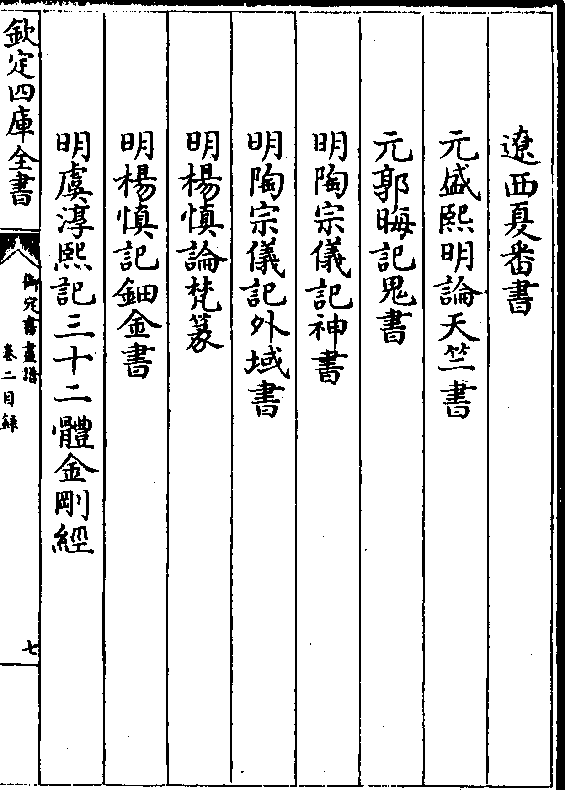 遼西夏番書
元盛熙明論天竺書
元郭晦記鬼書
明陶宗儀記神書
明陶宗儀記外域書
明楊慎論梵篆
明楊慎記鈿金書
明虞淳熙記三十二體金剛經
欽定四庫全書
御定書畫譜
卷二目録
七